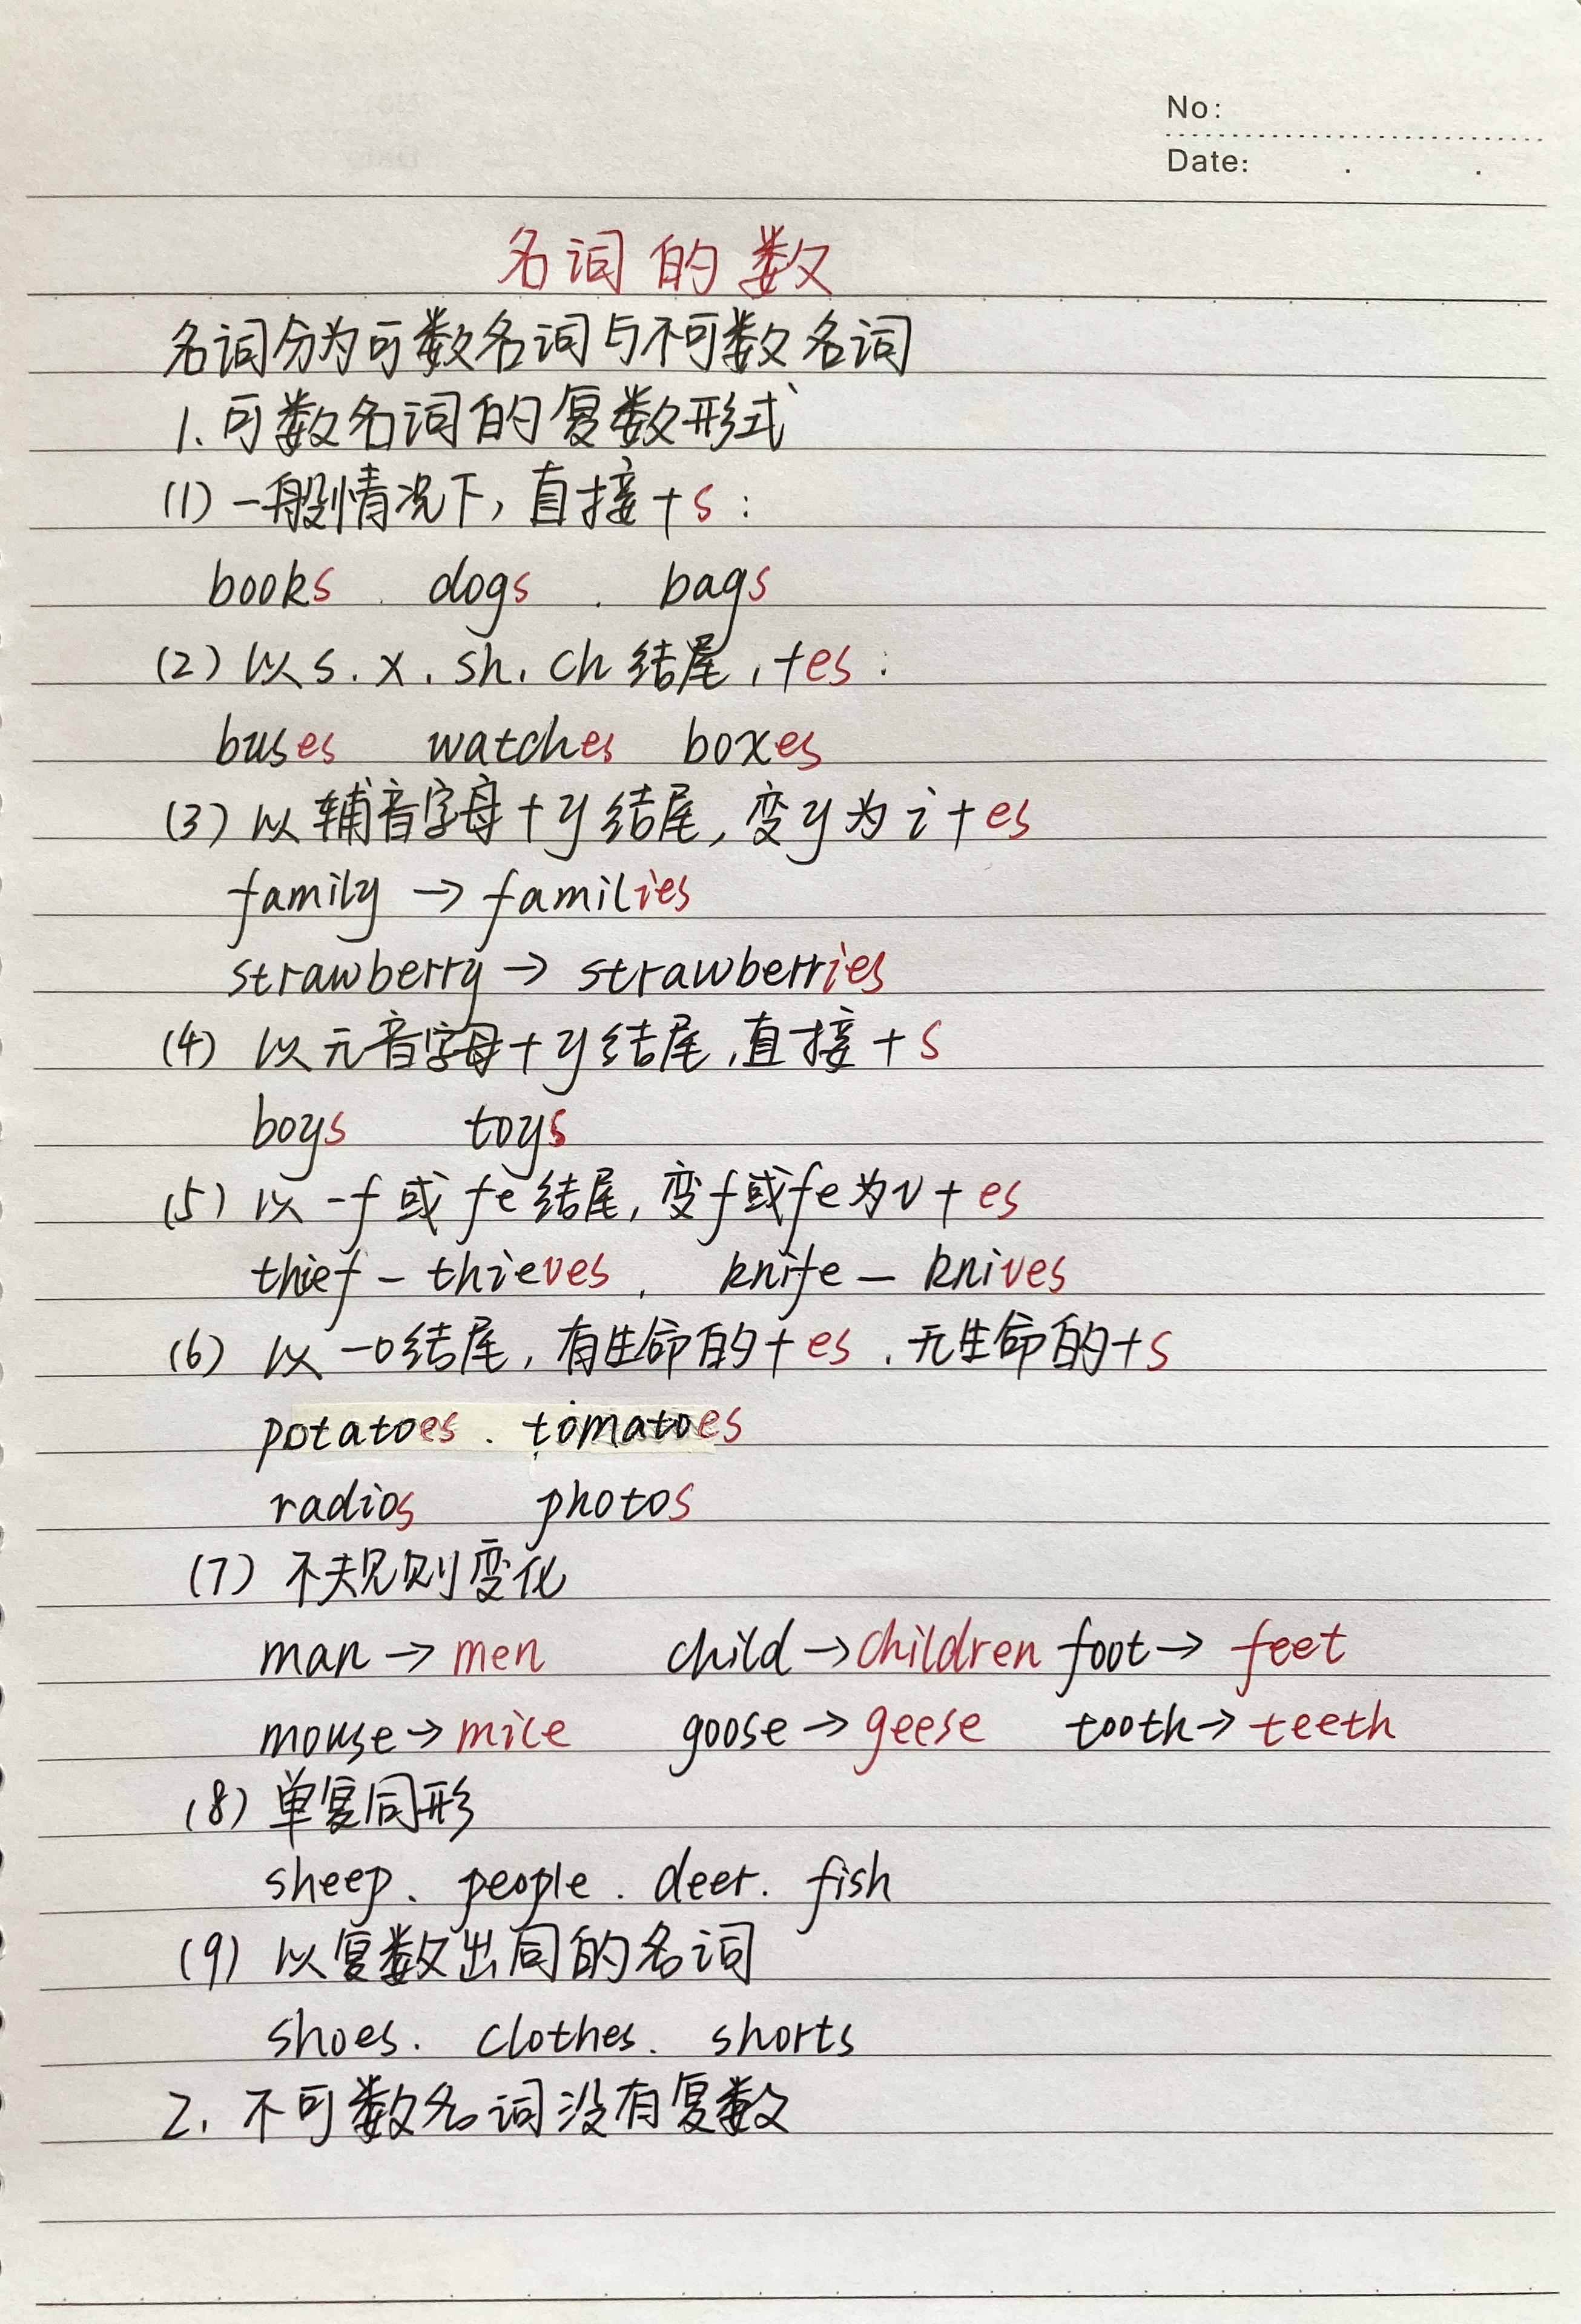 No:
Date:
名词的数
名词分为可数名词与不可数名词
1.可数名词的复数形式
(1)一般情况下,直接+s:
books . dogs . bags
(2)以s.x.sh.ch结尾,+es:
buses watches boxes
(3)以辅音字母+y结尾,变y为i+es
family→families
strawberry→strawberries
(4)以元音字母+y结尾,直接+s
boys toys
(5)以-f或fe结尾,变f或fe为v+es
thief-thieves, knife-knives
(6)以-o结尾,有生命的+es.无生命的+s
potatoes. tomatoes
radios photos
(7)不规则变化
man→men child→children foot→feet
mouse→mice goose→geese tooth→teeth
(8)单复同形
sheep. people. deer. fish
(9)以复数出同的名词
shoes. clothes. shorts
2.不可数名词没有复数